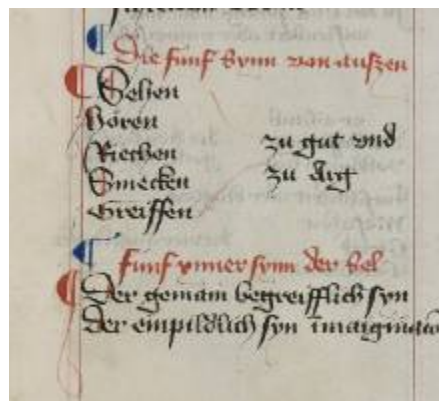 Die fünf Synn von aussen
Sehen
Hören
Riechen
Smecken
Greiffen
zu gut vnd
zu Arg
fünf ynner synn der sel
Der gemain begreifflich syn
Der einpildlich syn